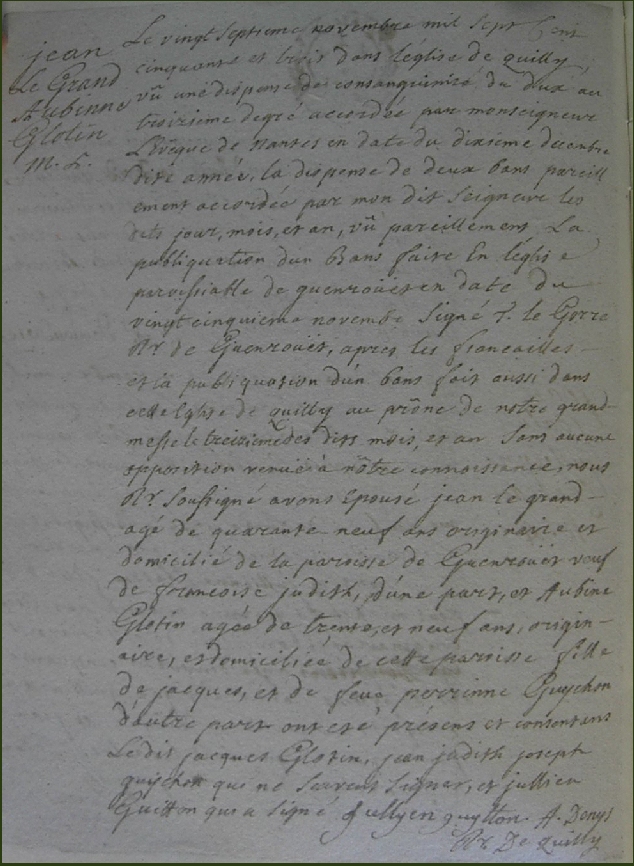 jean
Le Grand
Aubinne
Glotin
M. L.
Le vingt Septieme novembre mil Sept Cent
cinquante et trois dans léglise de quilly
vû une dispense de consanguinité du deux au
troizieme degré accordée par monseigneur
L'Evêque de nantes en date du dixieme
dite année, la dispense de deux bans pareill
ement accordée par mon dit Seigneur les
dits jour, mois, et an, vû pareillement La
publiquation d'un Bans faite En léglise
paroissialle de guenroüet en date du
vingt cinquieme novembe Signé le
Rr. de Guenroüet, apres les fiancailles
et la publiquation d'un bans fait aussi dans
cette Eglise de quilly au prône de nôtre grand
messe le treizieme des dits mois, et an Sans aucune
opposition venuë à nôtre connoissance, nous
Rr. Soussigné avons Epousé jean le grand
agé de quarante neuf ans originaire et
domicilié de la paroisse de Guenroüet veuf
de francoise judith, d'une part, et Aubine
Glotin agée de trente, et neuf ans, origin-
aire, et domiciliée de cette paroisse fille
de jacques, et de feuë perrinne Guychon
d'autre part ont eté présens et consentans
Le dit jacques Glotin, jean judith joseph
guischon qui ne Scavent Signer, et jullien
Guitton qui a Signé jullyen guytton A. Denys
Rr. De quilly